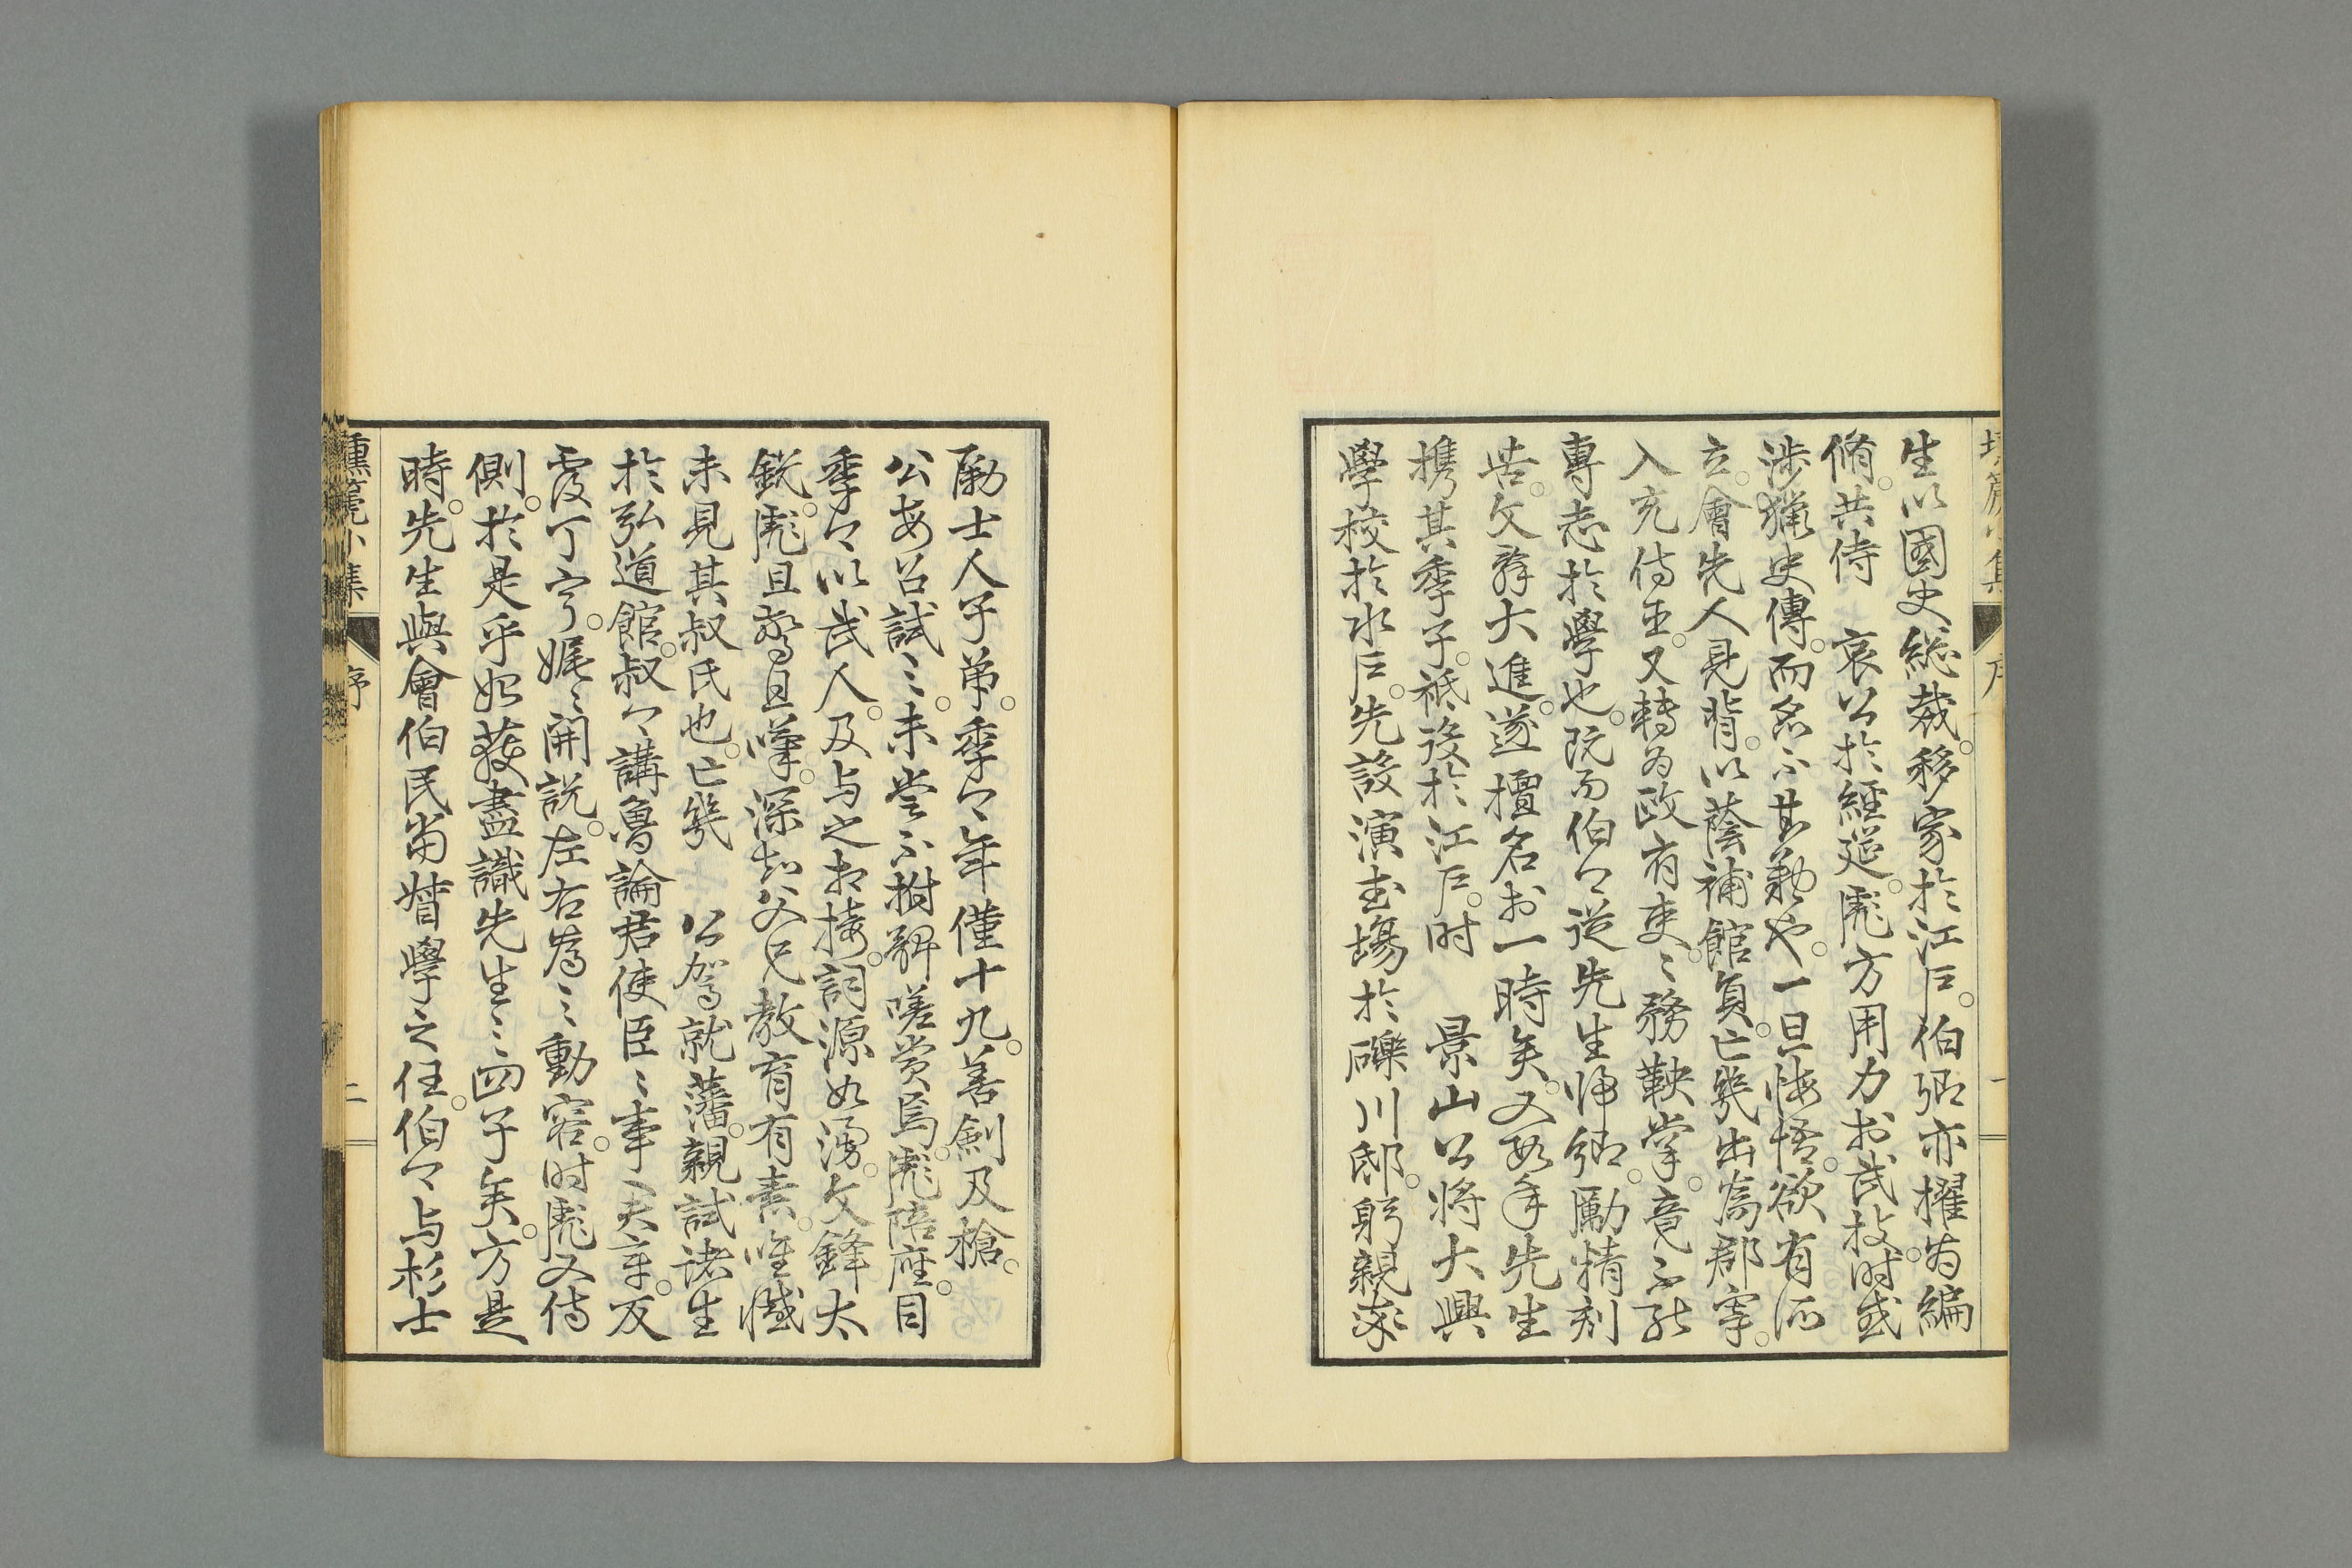 生以國史総裁。移家於江戶。伯卿亦擢為編
脩。共侍 哀公於經筵。彪方用力於武技。时或
涉獵史傳。而為不甚勤也。一旦悔悟。欲有所
立。會先人見背。以蔭補館負。亡幾出為郡宰。
入充侍臣。又轉為政府吏〻務鞅掌。竟不能
專志於學也。既而伯〻從先生帰鄉。勵精刻
苦。文辞大進。遂擅名於一時矣。又數年先生
携其季子。祗役於江戶。时 景山公將大興
學校於水戶。先設演武場於礫川邸。躬親率
勵士人子弟。季〻年僅十九。善劍及槍。
公每召試〻。未嘗不拊髀嗟賞焉。彪陪座。目
季〻以武人。及与之相接。詞源如湧。文鋒太
銳。彪且驚且嘆。深知父兄教育有素。唯憾
未見其叔氏也。亡幾 公駕就藩。親試諸生
於弘道館。叔〻講魯論君使臣〻事君章。反
覆丁寧。娓〻開説。左右為之動容。时彪又侍
側。於是乎始獲盡識先生之四子矣。方是
時。先生與會伯民當督學之任。伯〻与杉士
壎篪小集 序 二